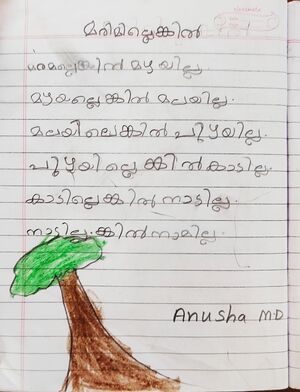 മരമില്ലെങ്കിൽ
മരമല്ലെങ്കിൽ മഴയില്ല.
മഴയല്ലെങ്കിൽ മലയില്ല.
മലയിലെങ്കിൽ പുഴയില്ല.
പുഴയില്ലെങ്കിൽ കാടില്ല.
കാടില്ലെങ്കിൽ നാട്ടില്ല.
നാട്ടില്ലങ്കിൽ നാമില്ല.
Anusha M.D